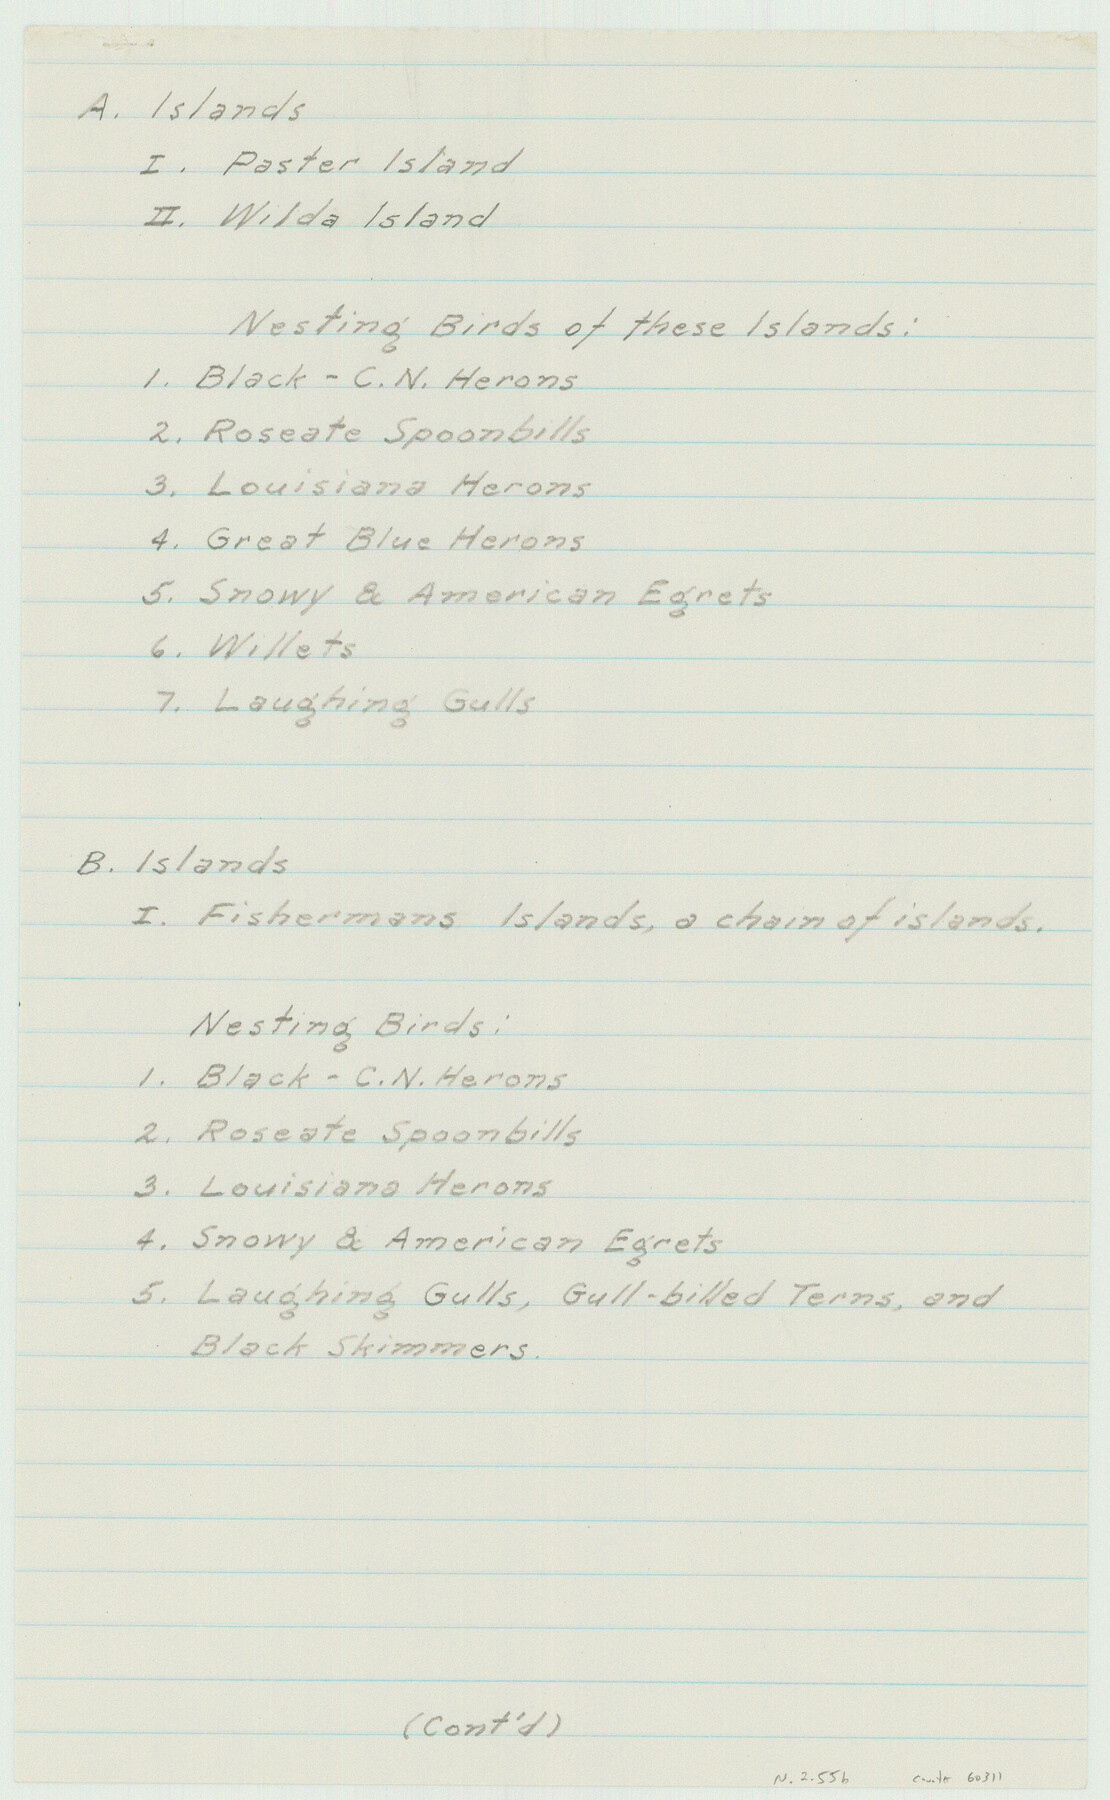 A. Islands
I. Paster Island
II. Wilda Island
Nesting Birds of these Islands:
1. Black - C.N. Herons
2. Roseate Spoonbills
3. Louisiana Herons
4. Great Blue Herons
5. Snowy & American Egrets
6. Willets
7. Laughing Gulls
B. Islands
I. Fishermans Islands, a chain of islands.
Nesting Birds:
1. Black - C.N. Herons
2. Roseate Spoonbills
3. Louisiana Herons
4. Snowy & American Egrets
5. Laughing Gulls, Gull-billed Terns, and
Black Skimmers.
(Cont'd)
N. 2.55b Counter 60311